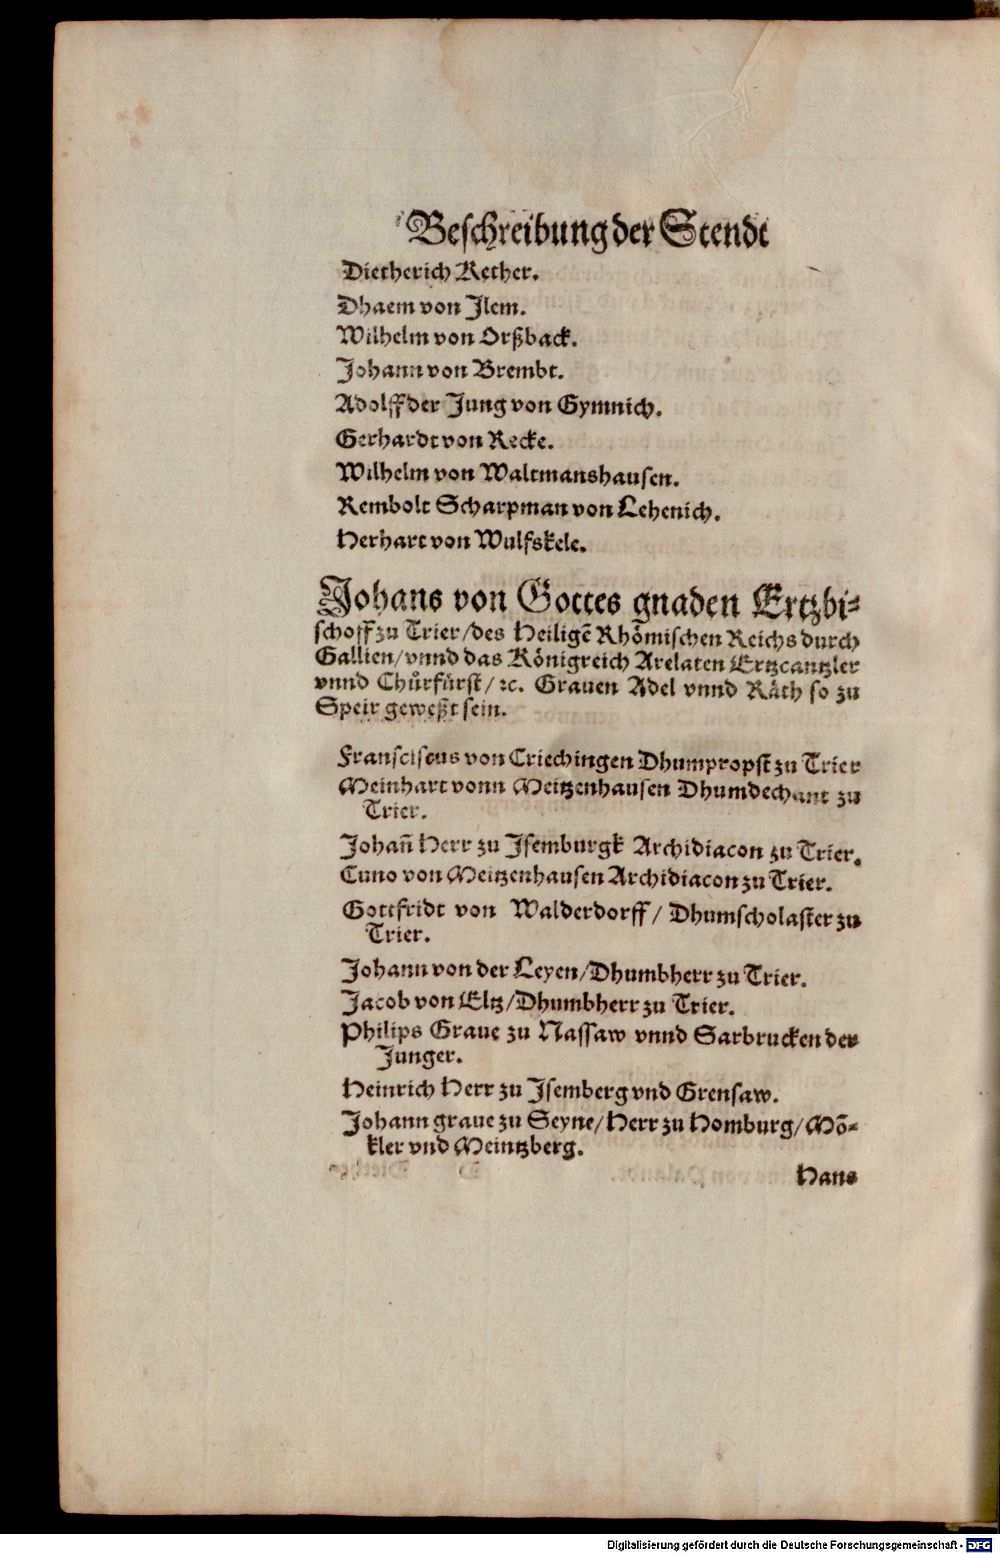 Beschreibung der Stendt
Dietherich Kether.
Dhaem von Ilem.
Wilhelm von Orßback.
Johann von Brembt.
Adolff der Jung von Gymnich.
Gerhardt von Recke.
Wilhelm von Waltmanshausen.
Rembolt Scharpman von Lehenich.
Herhart von Wulfskele.
Johans von Gottes gnaden Ertzbi-
schoff zu Trier/des Heiligẽ Rhömischen Reichs durch
Gallien/vnnd das Königreich Arelaten Ertzcantzler
vnnd Chůrfürst/ ꝛc. Grauen Adel vnnd Räth so zu
Speir geweßt sein.
Fransciscus von Criechingen Dhumpropst zu Trier
Meinhart vonn Meitzenhausen Dhumdechant zu
Trier.
Johañ Herr zu Isemburgk Archidiacon zu Trier.
Cuno von Meitzenhausen Archidiacon zu Trier.
Gottfridt von Walderdorff/ Dhumscholaster zu
Trier.
Johann von der Leyen/Dhumbherr zu Trier.
Jacob von Eltz/Dhumbherr zu Trier.
Philips Graue zu Nassaw vnnd Sarbrucken der
Junger.
Heinrich Herr zu Isemberg vnd Grensaw.
Johann graue zu Seyne/Herr zu Homburg/Mõ-
kler vnd Meintzberg.
Hans
Digitalisierung gefördert durch die Deutsche Forschungsgemeinschaft - DFG